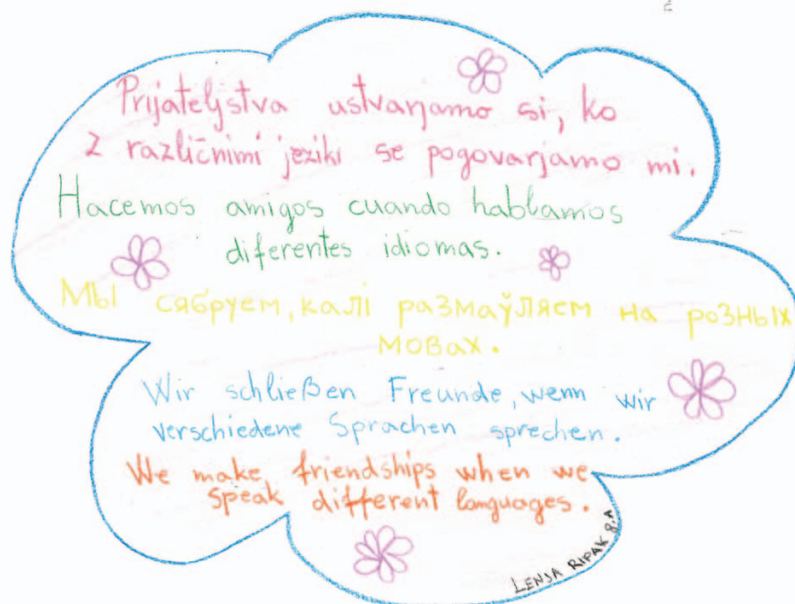 Prijateljstva ustvarjamo si, ko
z različnimi jeziki se pogovarjamo mi.
Hacemos amigos cuando hablamos
diferentes idiomas.
Мы сябруем, калі размаўляем на розных
мовах.
Wir schließen Freunde, wenn wir
verschiedene Sprachen sprechen.
We make friendships when we
speak different languages.
LENSA RIPAK 8.A